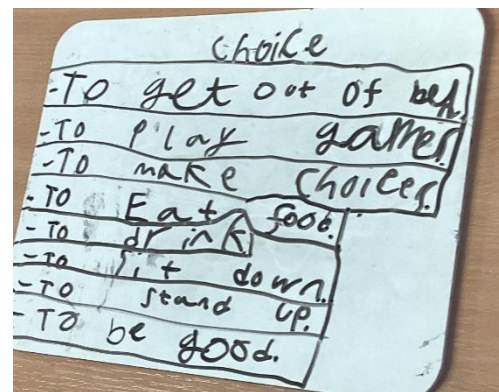 choice
-To get out of bed.
-To play games.
-To make choices.
-To Eat food.
-To drink
-To sit down.
-To stand up.
-To be good.